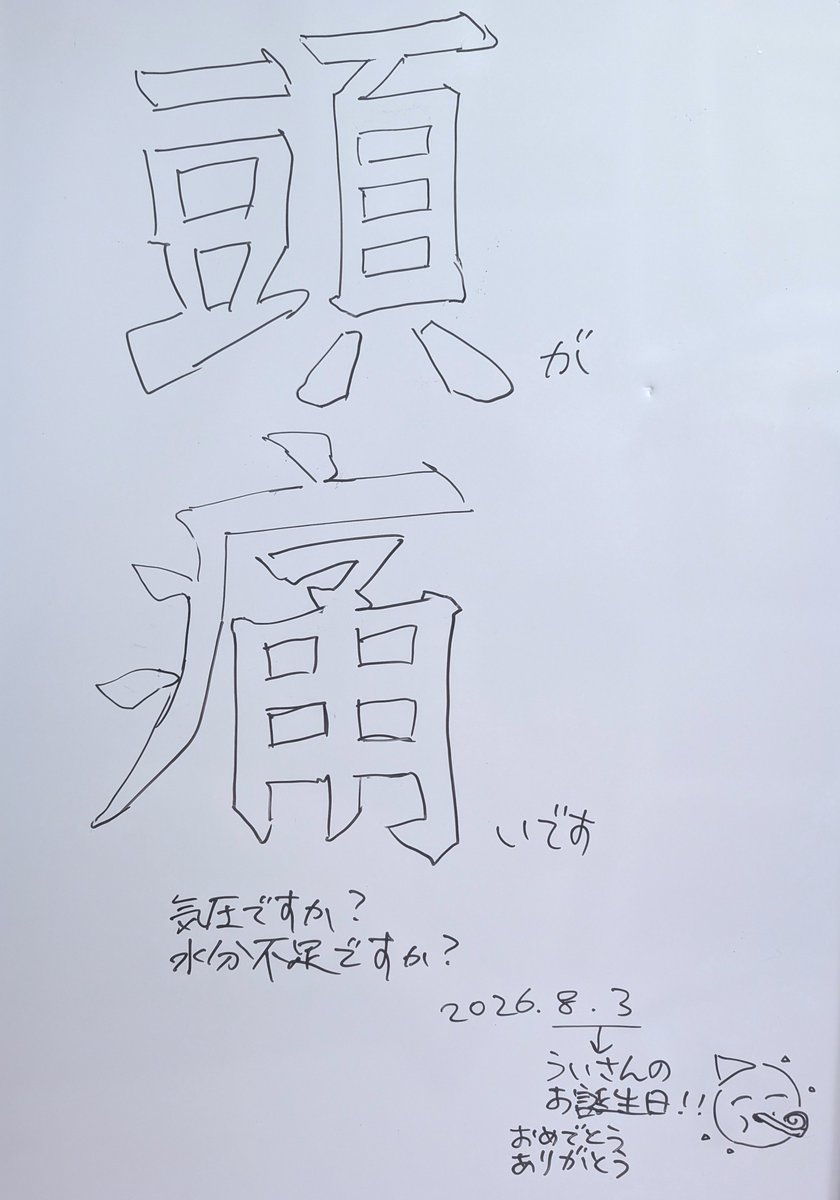 頭が
痛いです
気圧ですか?
水分不足ですか?
2026.8.3
↓
ういさんの
お誕生日!!
おめでとう
ありがとう